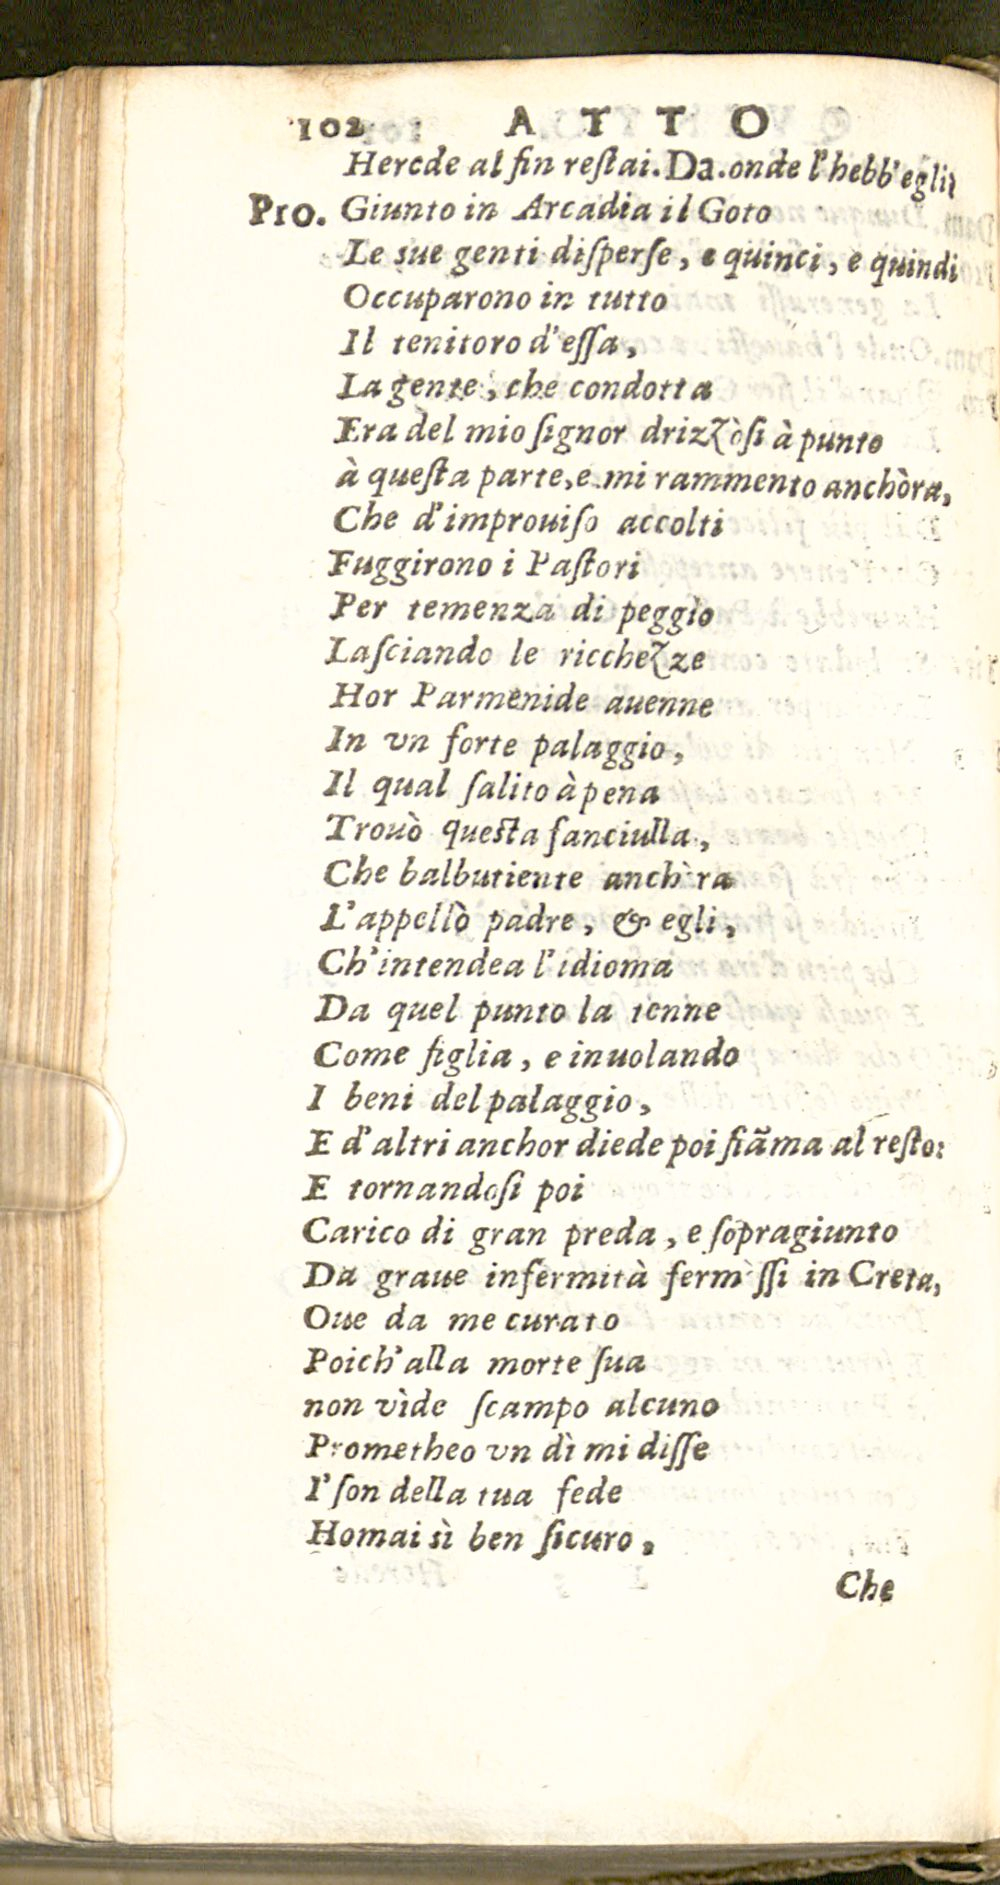 102 ATTO
Herede al fin reſtai. Da. onde l'hebb'egli?
Pro. Giunto in Arcadia il Goto
Le sue genti diſperſe, e quinci, e quindi
Occuparono in tutto
Il tenitoro d'eſſa,
La gente, che condotta
Era del mio ſignor drizzòſi à punto
à queſta parte, e mi rammento anchòra,
Che d'improuiſo accolti
Fuggirono i Paſtori
Per temenza di peggio
Laſciando le ricchezze
Hor Parmenide auenne
In vn forte palaggio,
Il qual ſalito à pena
Trouò queſta fanciulla,
Che balbutiente anchòra
L'appellò padre, & egli,
Ch'intendea l'idioma
Da quel punto la tenne
Come figlia, e inuolando
I beni del palaggio,
E d'altri anchor diede poi fiãma al reſto:
E tornandoſi poi
Carico di gran preda, e ſopragiunto
Da graue infermità fermòſſi in Creta,
Oue da me curato
Poich'alla morte ſua
non vìde ſcampo alcuno
Prometheo vn dì mi diſſe
I' ſon della tua fede
Homai sì ben ſicuro,
Che